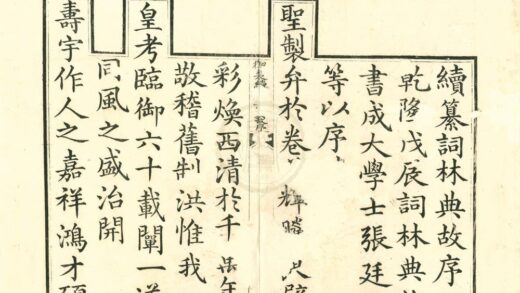 續纂詞林典故序
乾隆戊辰詞林典
書成大學士張廷
等以序
聖製弁於卷
彩煥西清於千 年
敬稽舊制洪惟我
皇考臨御六十載闡一道
同風之盛治開
壽宇作人之嘉祥鴻才碩